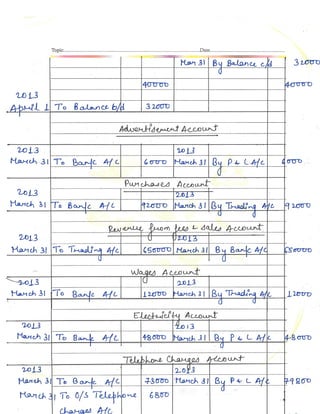 Topic Date
Mar 31 By Balance c/d 32000
40000 40000
2013
April 1 To Balance b/d 32000
Advertisement Account
2013 2013
March 31 To Bank A/c 6000 March 31 By P & L A/c 6000
Purchases Account
2013 2013
March 31 To Bank A/c 92000 March 31 By Trading A/c 92000
Revenue from fees & sales Account
2013 2013
March 31 To Trading A/c 650000 March 31 By Bank A/c 650000
Wages Account
2013 2013
March 31 To Bank A/c 12000 March 31 By Trading A/c 12000
Electricity Account
2013 2013
March 31 To Bank A/c 48000 March 31 By P & L A/c 48000
Telephone Charges Account
2013 2013
March 31 To Bank A/c 73000 March 31 By P & L A/c 79800
March 31 To O/S Telephone 6800
Charges A/c